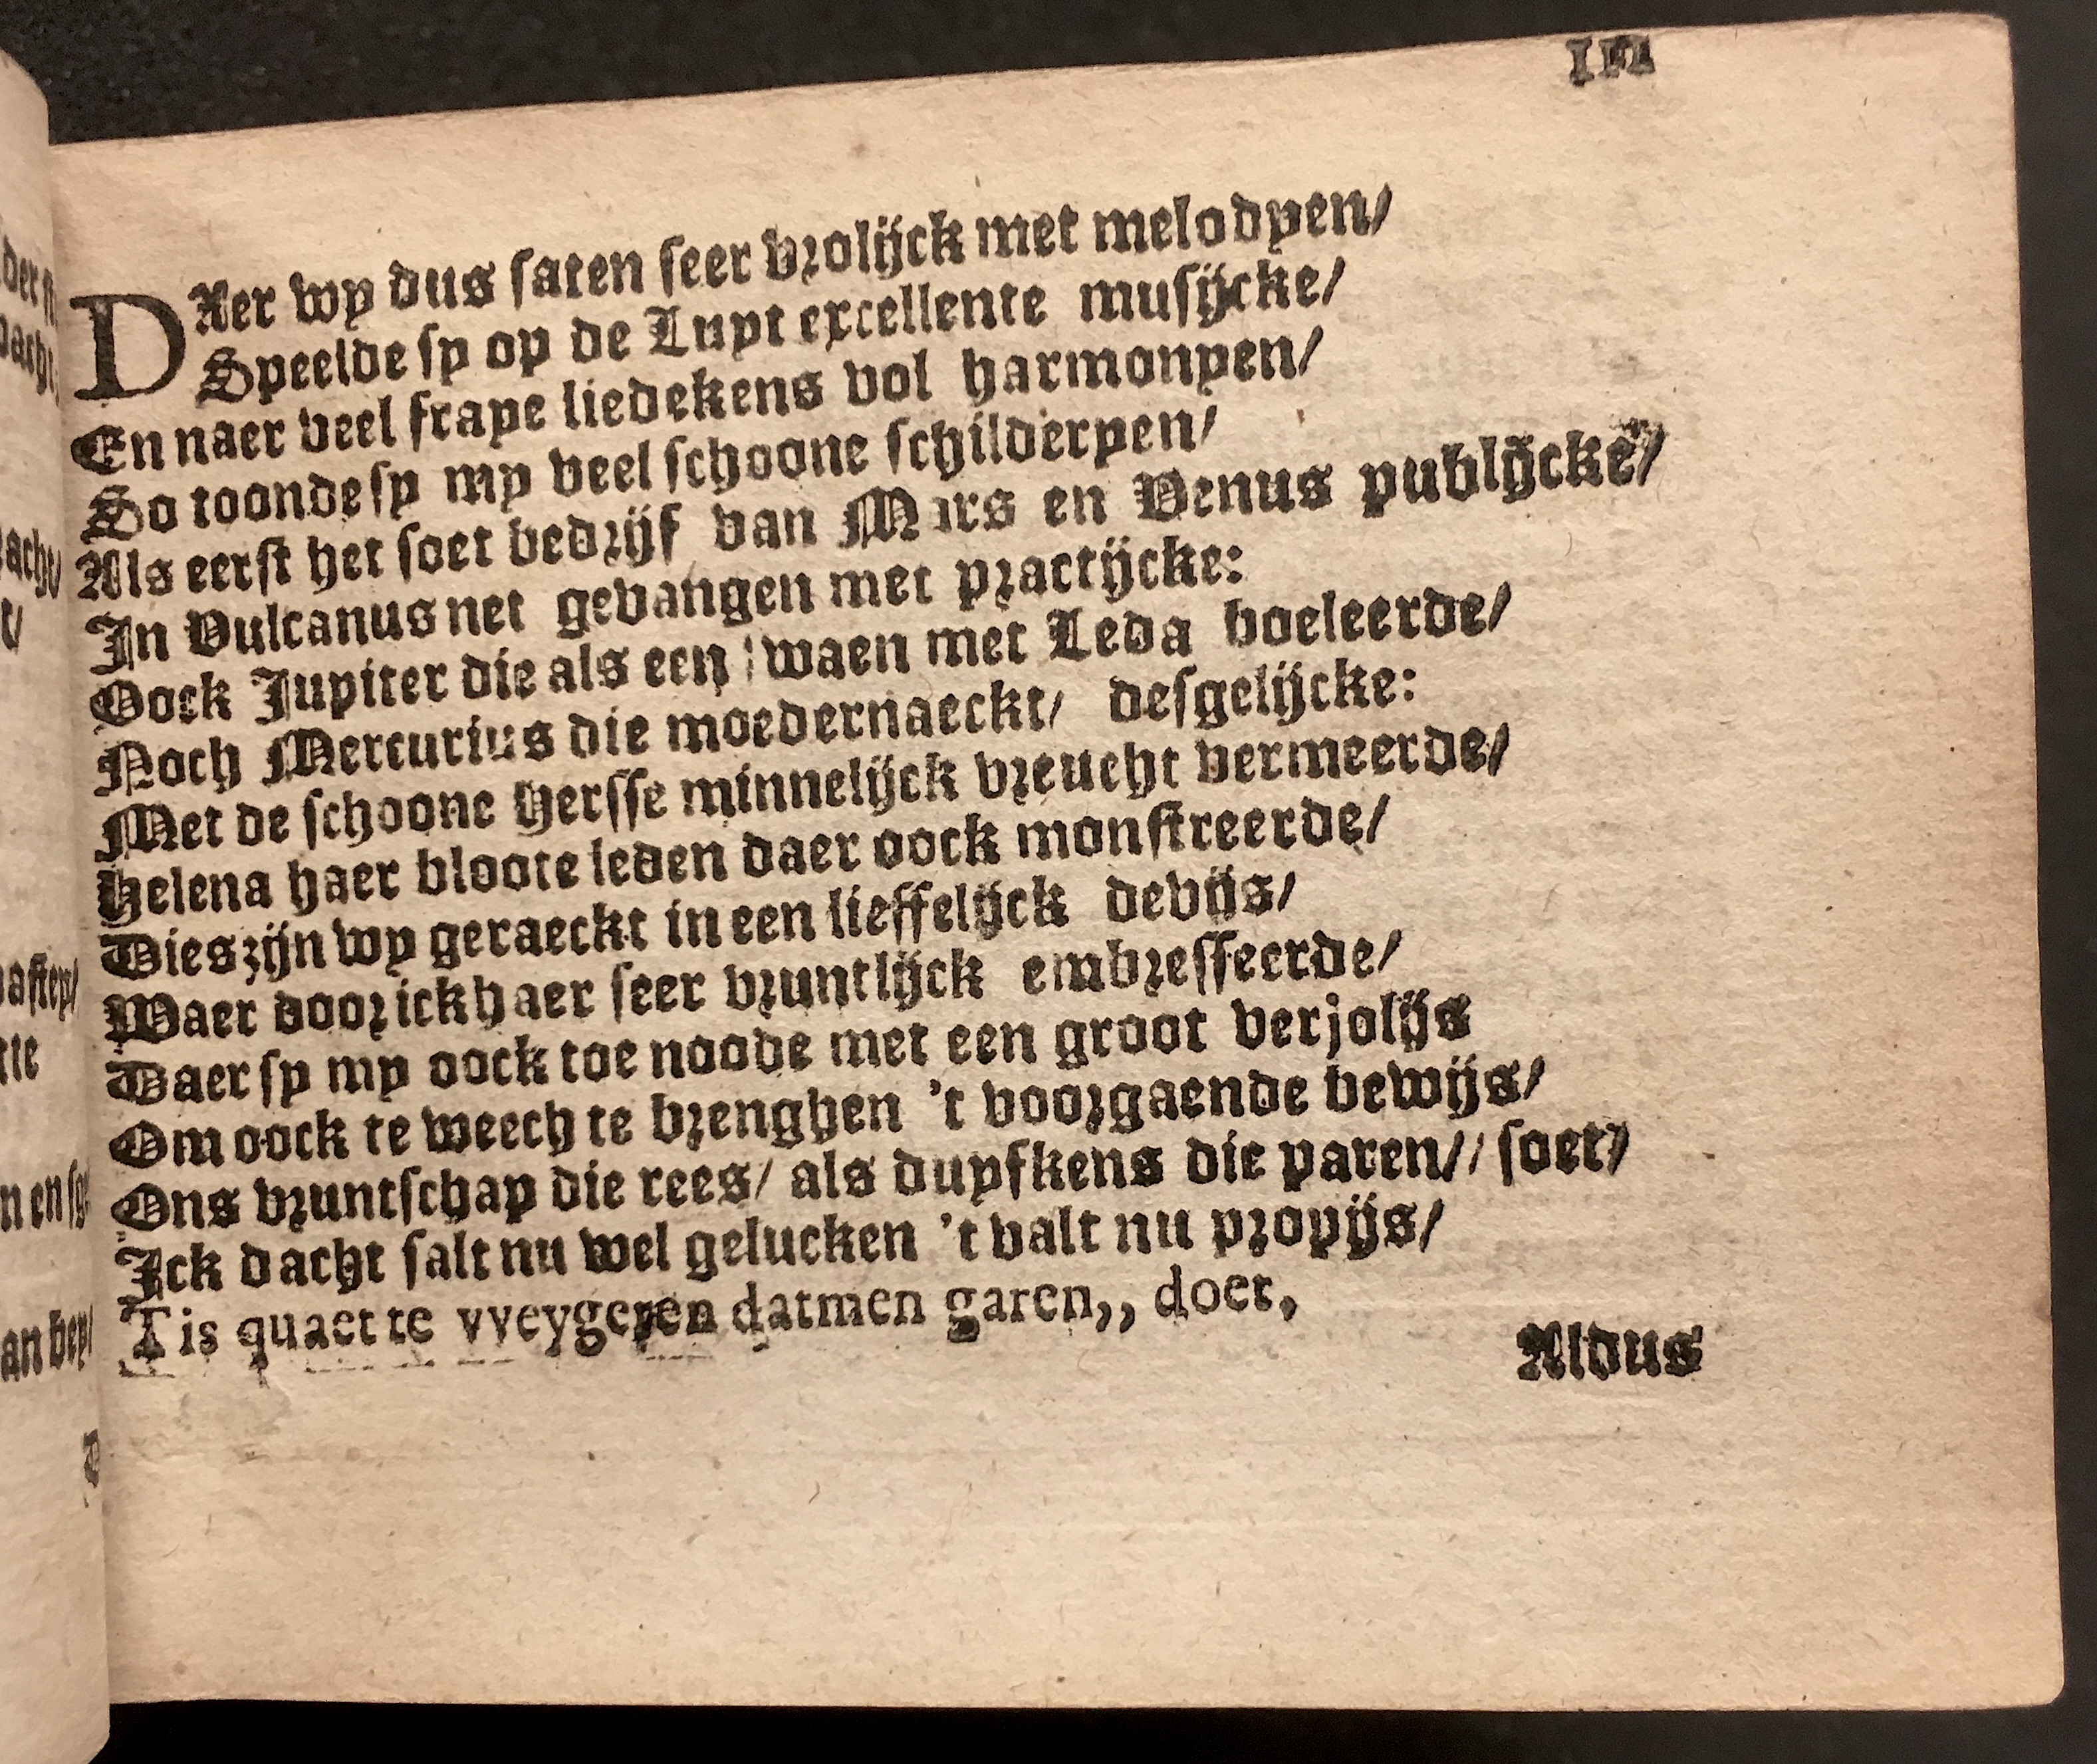 III
DAer wy dus saten seer vrolijck met melodyen/
Speelde sy op de Luyt excellente musijcke/
En naer veel fraye liedekens vol harmonyen/
So toonde sy my veel schoone schilderyen/
Als eerst het soet bedrijf van Mars en Venus publijcke/
In Vulcanus net gevangen met practijcke:
Oock Jupiter die als een swaen met Leda boeleerde/
Noch Mercurius die moedernaeckt/ desgelijcke:
Met de schoone Hersse minnelijck vreucht vermeerde/
Helena haer bloote leden daer oock monstreerde/
Dies zijn wy geraeckt in een lieffelijck devijs/
Waer door ick haer seer vruntlijck embresseerde/
Daer sy my oock toe noode met een groot verjolijs
Om oock te weech te brenghen 't voorgaende bewijs/
Ons vruntschap die rees/ als duyfkens die paren// soet/
Ick dacht salt nu wel gelucken 't valt nu propijs/
T is quaet te vveygeren datmen garen,, doet,
Aldus